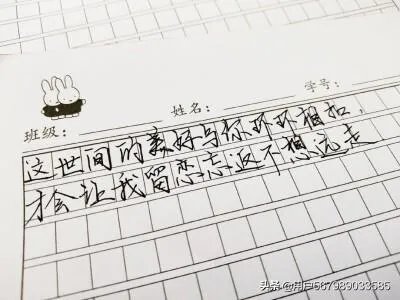 班级： 姓名： 学号：
这世间的美好与你环环相扣，
才会让我留恋忘返不想远走
头条 @用户567989033585